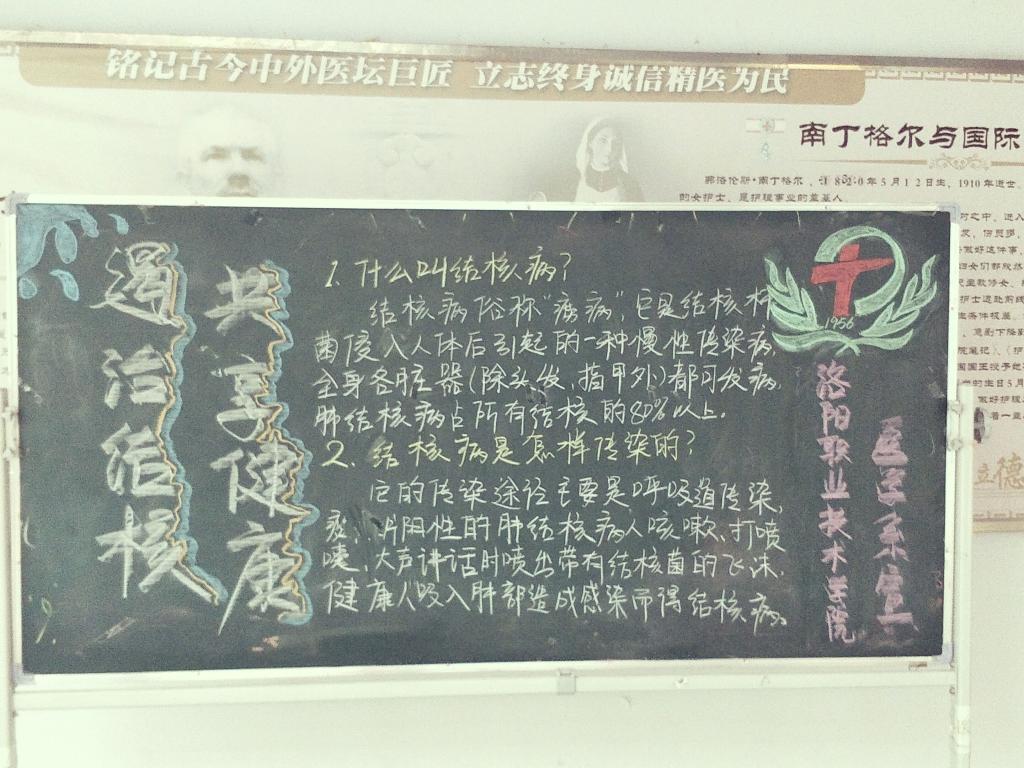 铭记古今中外医坛巨匠 立志终身诚信精医为民
南丁格尔与国际
弗洛伦斯·南丁格尔，1820年5月12日生，1910年逝世，
的女护士，是护理事业的奠基人
共享健康
1. 什么叫结核病？
结核病俗称“痨病”，它是结核杆
菌侵入人体后引起的一种慢性传染病，
全身各脏器(除头发，指甲外)都可发病，
肺结核病占所有结核的80%以上。
2、结核病是怎样传染的？
它的传染途径主要是呼吸道传染，
痰阴阳性的肺结核病人咳嗽、打喷
嚏，大声讲话时喷出带有结核菌的飞沫，
健康人吸入肺部造成感染而得结核病。
1956
洛阳职业技术学院
医学系宣
立德